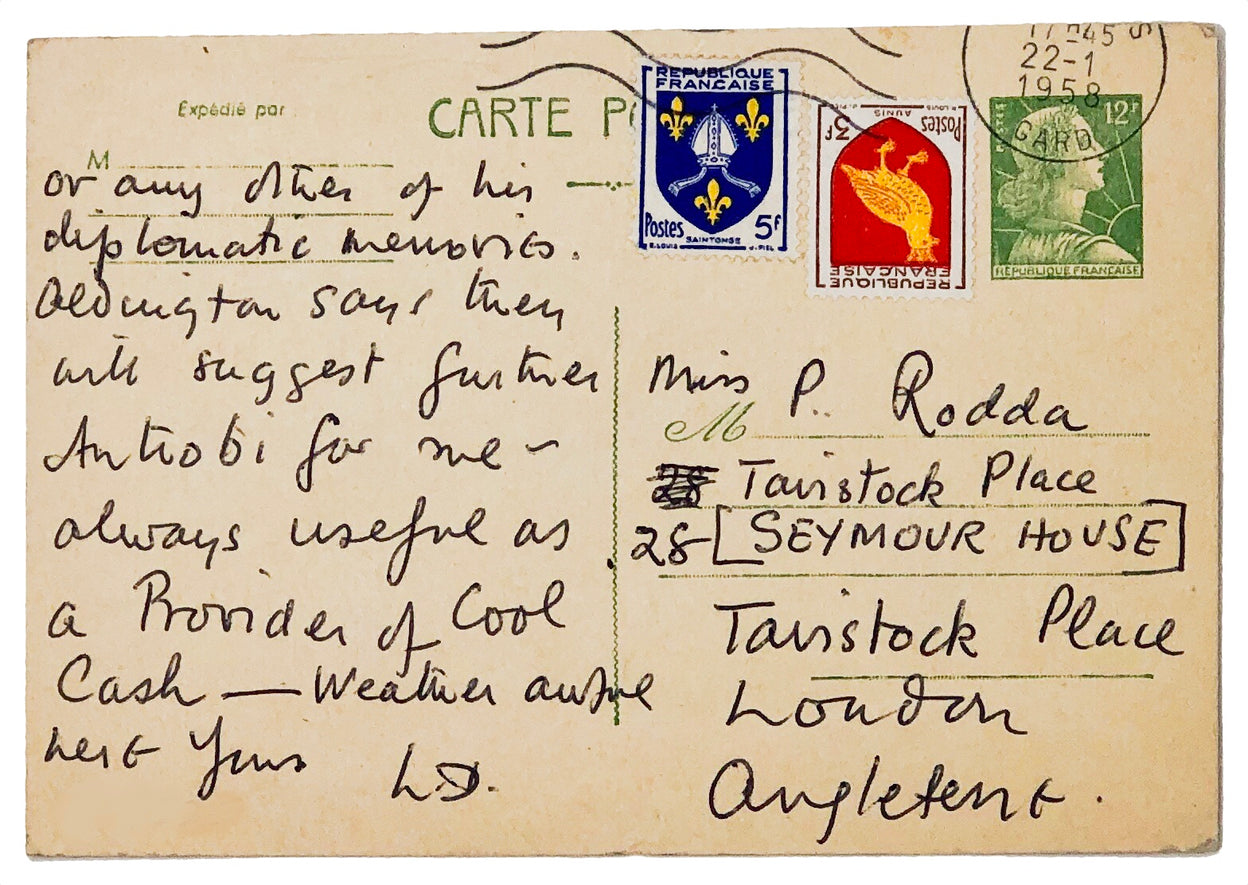 Expédié par
CARTE P
M
or any other of his
diplomatic memories.
Aldington says they
will suggest further
Antrobi for me –
always useful as
a Provider of Cool
Cash — Weather awful
here Yours
L.D.
RÉPUBLIQUE
FRANÇAISE
Postes 5F
R.LOUIS SAINTONGE J.PIEL
3F Postes
R.LOUIS AUNIS J.PIEL
RÉPUBLIQUE
FRANÇAISE
17H45 S
22-1
1958
GARD
12F
RÉPUBLIQUE FRANÇAISE
Miss P. Rodda
M
28 Tavistock Place
28 [SEYMOUR HOUSE]
Tavistock Place
London
Angleterre.